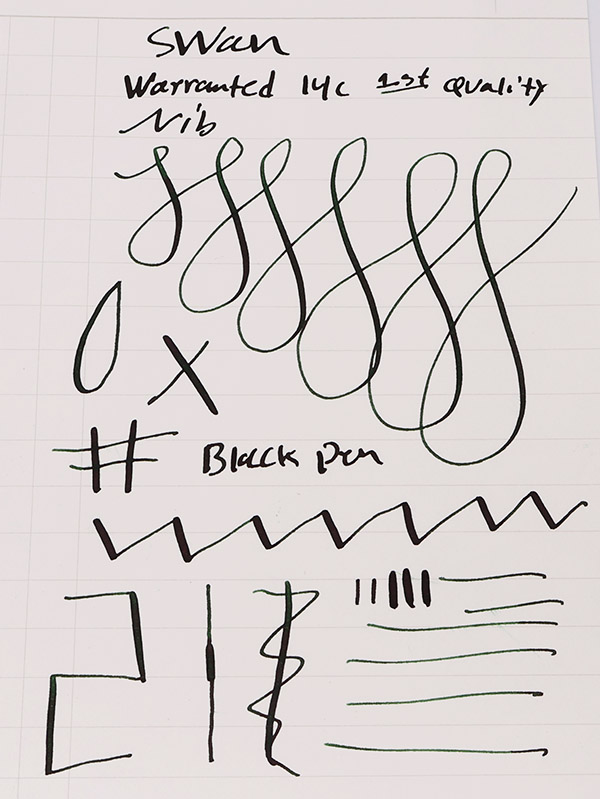 Swan
Warranted 14c 1st Quality
Nib
Black pen